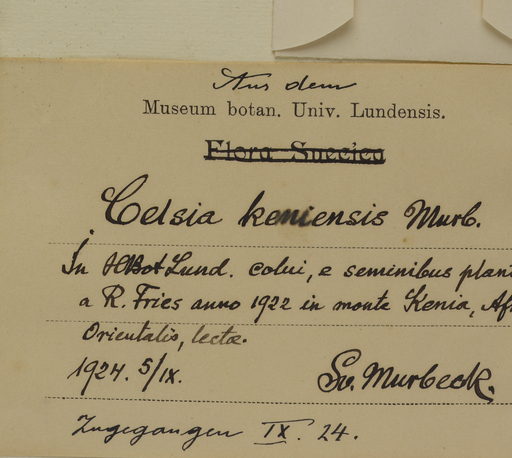 Aus dem
Museum botan. Univ. Lundensis.
Flora Suecica
Celsia keniensis Murb.
In HBot Lund. colui, e seminibus plant
a R. Fries anno 1922 in monte Kenia, Af
Orientalis, lectæ.
1924. 5/IX.
Sv. Murbeck.
Zugegangen IX. 24.